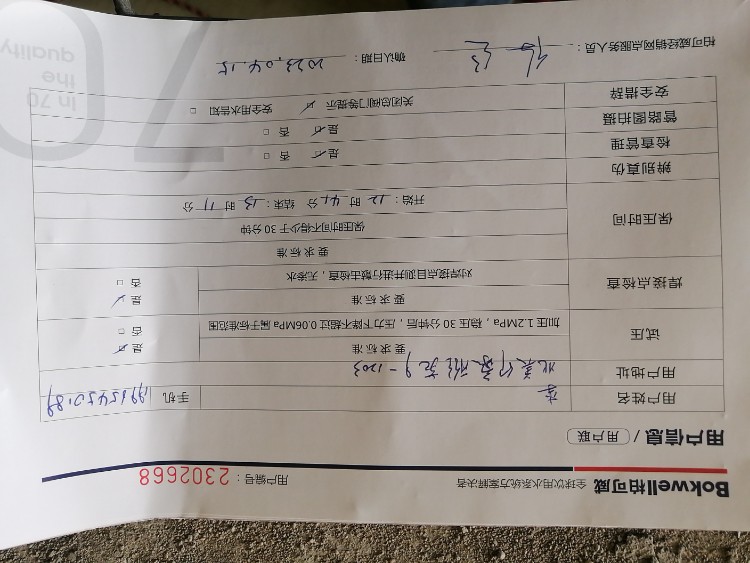 Bokwell柏可威 全球饮用水系统方案解决者 用户编号：2302668
用户信息 / 用户联
用户姓名 李 手机
用户地址 -1203
试压 要求标准 是
加压1.2MPa，稳压30分钟后，压力下降不超过0.06MPa属于标准范围 否
焊接点检查 要求标准 是
对焊接点目测并进行敲击检查，无渗水 否
保压时间 要求标准
保压时间不得少于30分钟
开始：12 时 41 分 结束：13 时 11 分
辨别真伪
检查管理 是 否
管路图拍摄 是 否
安全措辞 关闭总阀门等提示 安全用水告知
柏可威经销网点服务人员： 确认日期：2023.04.15
In 70
the
quality
70